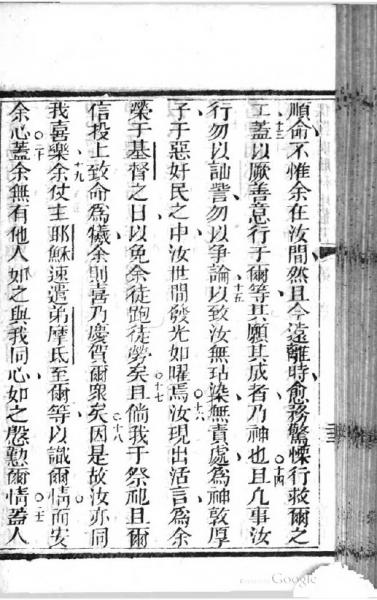 順命不惟余在汝間然且今遠離時愈務驚慄行救爾之
十三 工蓋以厥善意行于爾等其願其成者乃神也 十四 且凡事汝
行勿以訕詈勿以爭論 十五 以致汝無玷染無責處為神敦厚
子于惡奸民之中汝世間發光如曜焉 十六 汝現出活言為余
榮于基督之日以免余徒跑徒勞矣 十七 且倘我于祭祀且爾
信投上致命為犧余則喜乃慶賀爾眾矣 十八 因是故汝亦同
我喜樂 十九 余仗主耶穌速遣弟摩氐至爾等以識爾情而安
余心 二十 蓋余無有他人如之與我同心如之慇懃爾情 二一 蓋人
Google